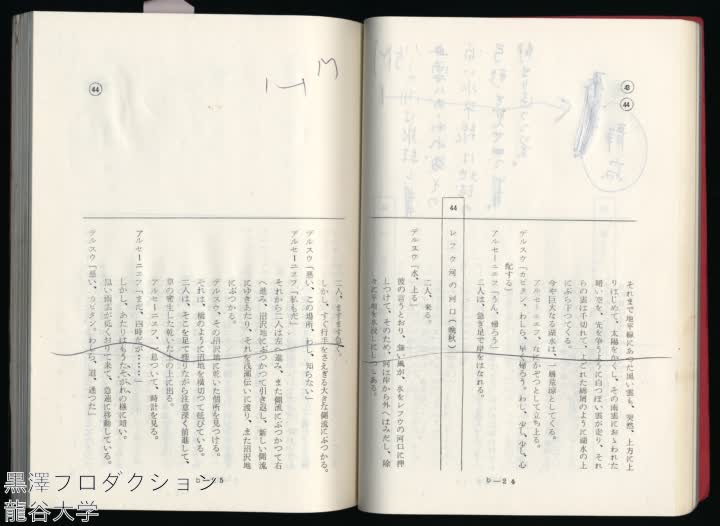 ㊸
㊹
それまで地平線にあつた黒い雲も、突然、上方に上
りはじめて、太陽をかくし、その雨雲におゝわれた
暗い空を、先を争うように白つぽい雲が走り、それ
らの雲は千切れて、よごれた綿屑のように湖水の上
にぶら下つてくる。
今や巨大なる湖水は、一層荒涼としてくる。
アルセーニエフ、なにかぞつとして立ち上る。
デルスウ「カピタン、わしら、早く帰ろう。わし、少し、少し、心
配する」
アルセーニエフ「うん、帰ろう」
二人は、急ぎ足で岸をはなれる。
44 レフウ河の河口(晩秋)
二人、来る。
デルスウ「水、上る」
彼の言うとおり、強い風が、水をレフウの河口に押
しつけて、そのため、河は岸から外へはみだし、除
々に平地を水浸しにしつゝある。
b—24
㊹
二人、ますます急ぐ。
しかし、すぐ行手をさえぎる大きな側流にぶつかる。
デルスウ「悪い、この場所、わし、知らない」
アルセーニエフ「私もだ」
それから二人は左へ進み、また側流にぶつかつて右
へ進み、沼沢地にぶつかつて引き返し、新しい側流
にゆきあたり、それを浅瀬伝いに渡り、また沼沢地
にぶつかる。
デルスウ、その沼沢地に乾いた個所を見つける。
それは、橋のように沼地を横切つて延びている。
二人は、そこを足で探りながら注意深く前進して、
草の密生した乾いた土の上に出る。
アルセーニエフ、一息ついて、時計を見る。
アルセーニエフ「まだ、四時だが……」
しかし、あたりはもうたそがれの様に暗い。
黒い雨雲が低くおりて来て、急速に移動している。
デルスウ「悪い、カピタン。わしら、道、迷つた」
b—25
黒澤プロダクション
龍谷大学